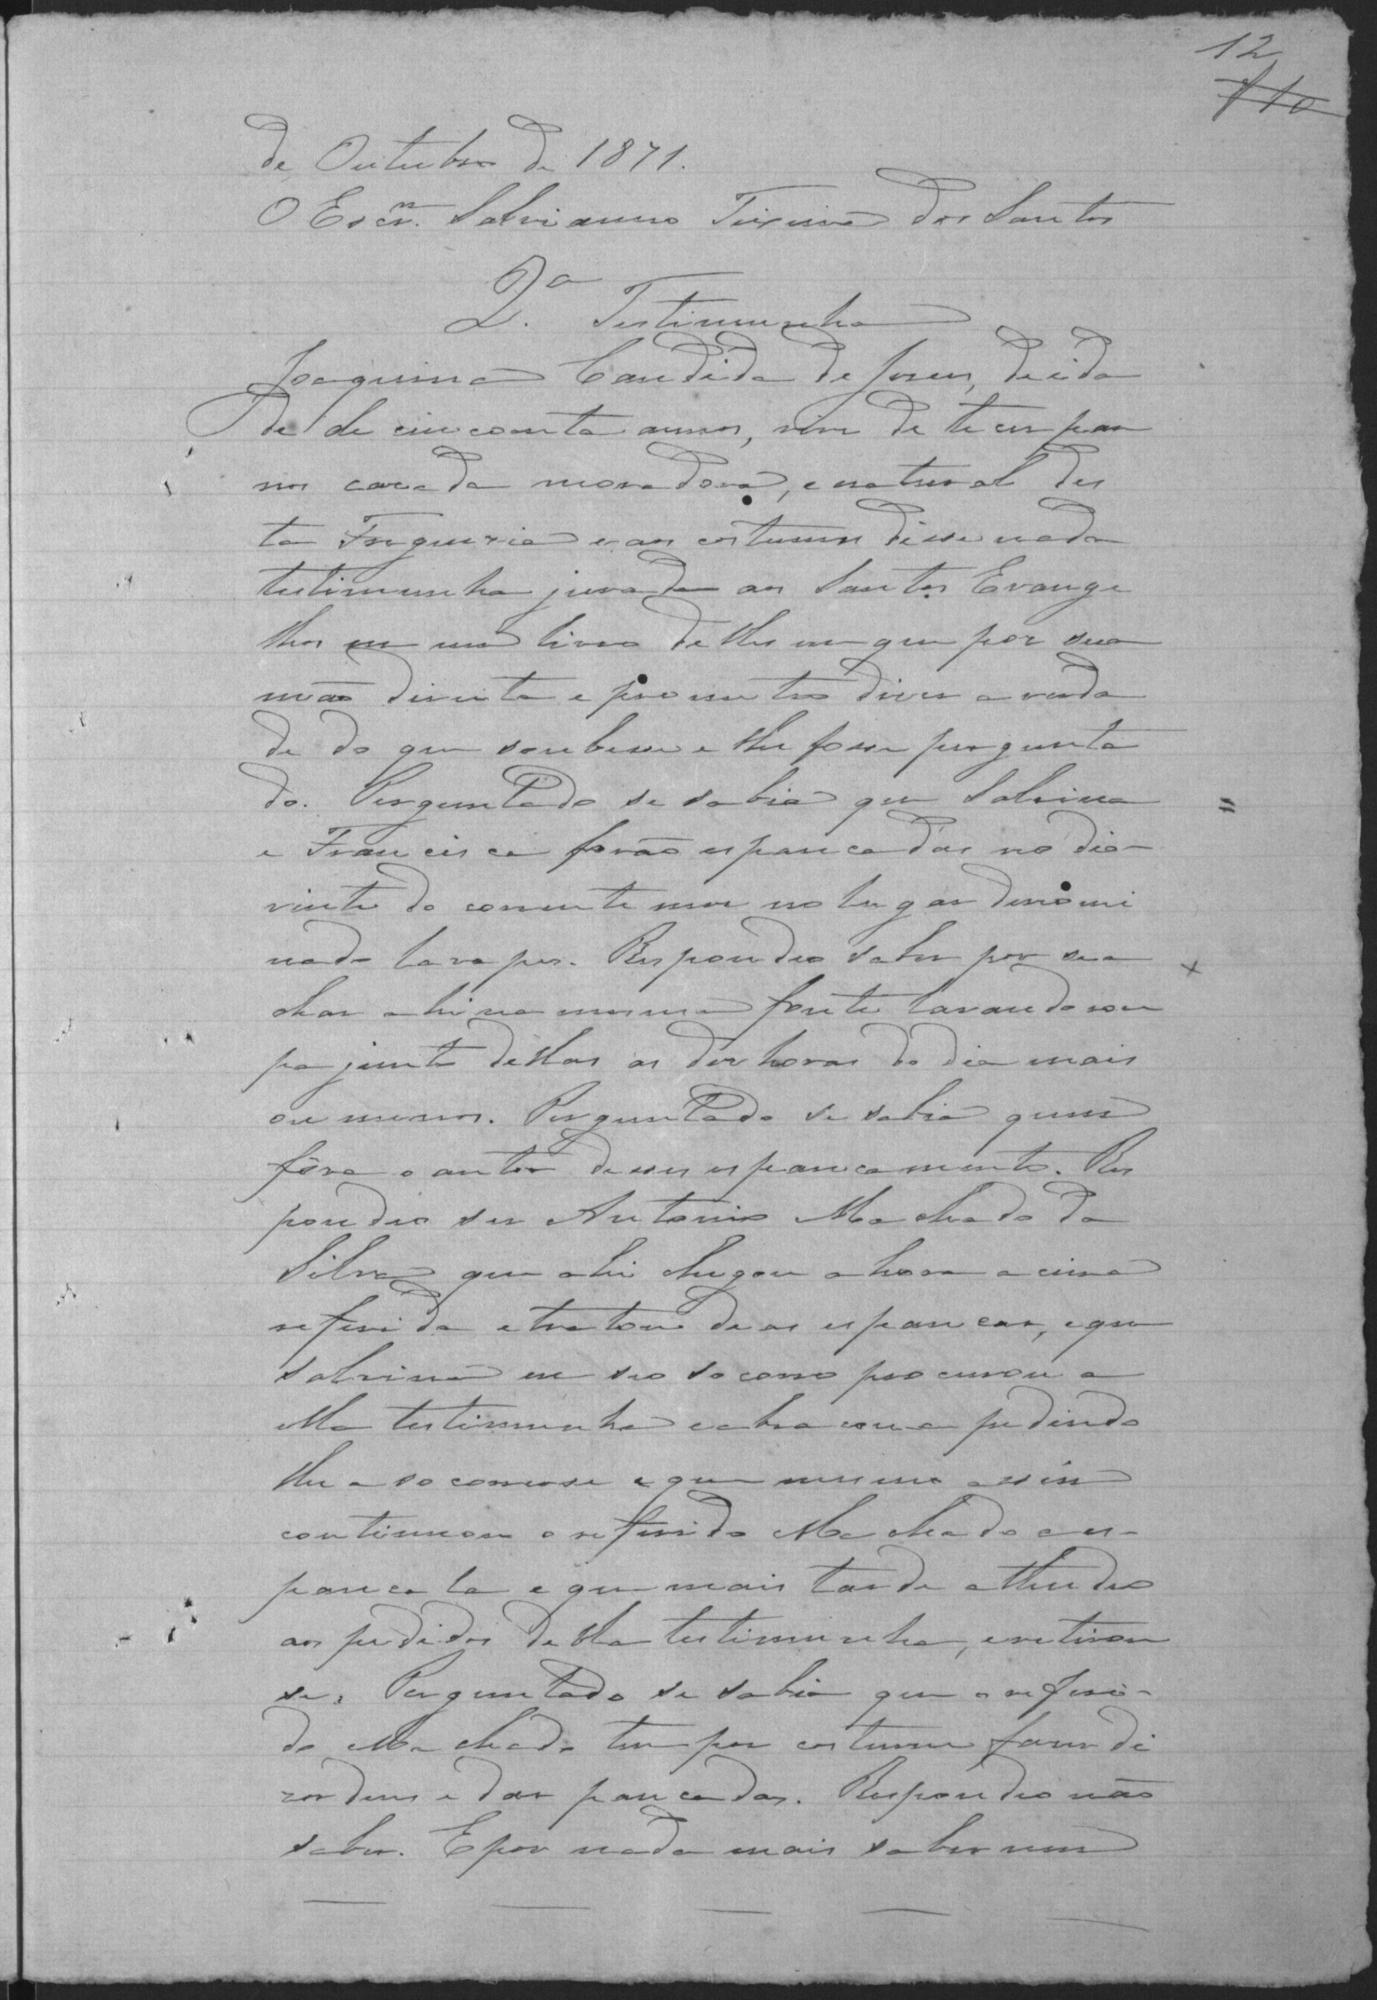 12
10
de Outubro de 1871.
O Escr.m Salvianno Teixeira dos Santos
2.a Testimunha
Joaquina Candida de Jesus, de ida
de de cincoenta annos, vive de tecer pan
nos casada moradora, e natural des
ta Freguezia e aos costumes disse nada
testimunha jurada aos Santos Evange
lhos em um livro delles em que por sua
mão direita e prometeo diser a verda
de do que soubesse e lhe fosse pergunta
do. Perguntado se sabia que Sabina
e Francisca forão espancadas no dia
vinte do corrente mez no lugar denomi
nado lava pes. Respondeo saber por se a
char ahi na mesma fonte lavando rou
pa junto dellas as dez horas do dia mais
ou menos. Perguntado se sabia quem
fôra o autor desses espancamento. Res
pondeo ser Antonio Machado da
Silva que ahi chegou a hora acima
referida e tratou de as espancar, e que
Sabina em seo socorro procurou a
ella testimunha e abraçou a pedindo
lhe a socorresse e que mesmo assim
continuou o referido Machado a es-
pancala e que mais tarde attendeo
aos pedidos della testimunha, e retirou
se. Perguntado se sabia que o referi-
do Machado tem por costume faser di
zordens e dar pancadas. Respondeo não
saber. E por nada mais saber nem